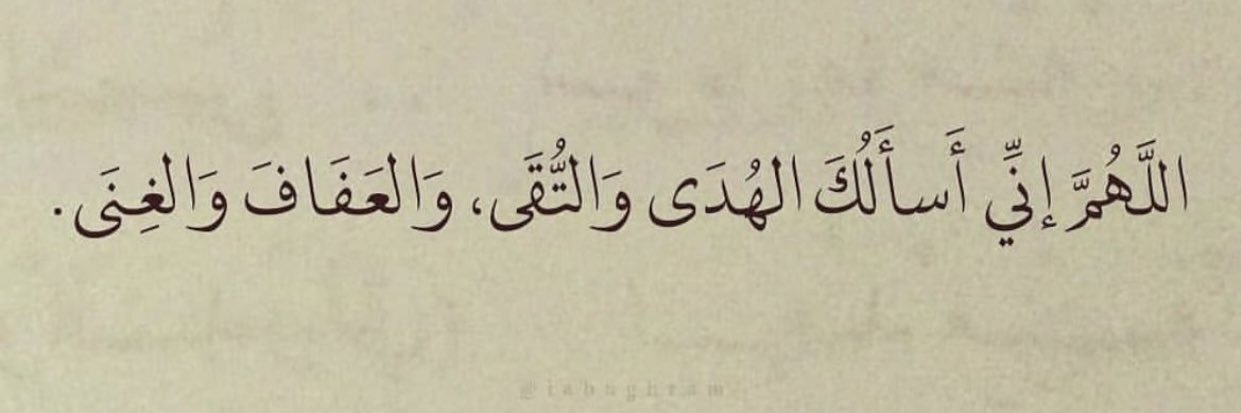 اللَّهُمَّ إنِّي أَسأَلُكَ الهُدَى وَالتُّقَى، وَالعَفَافَ وَالغِنَى.